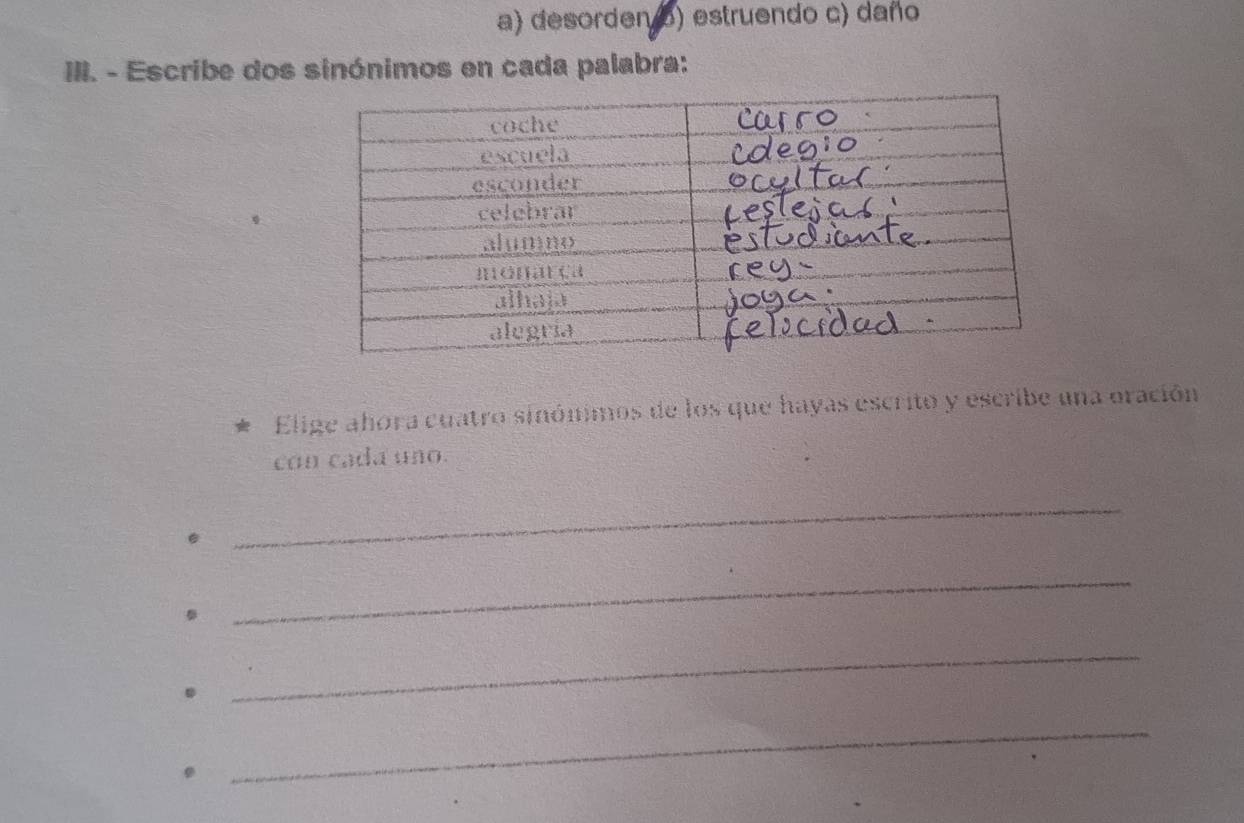 a) desorden b) estruendo c) daño
III. - Escribe dos sinónimos en cada palabra:
coche carro
escuela colegio
esconder ocultar
celebrar festejar
alumno estudiante.
monarca rey
alhaja joya.
alegría felicidad
★ Elige ahora cuatro sinónimos de los que hayas escrito y escribe una oración
con cada uno.